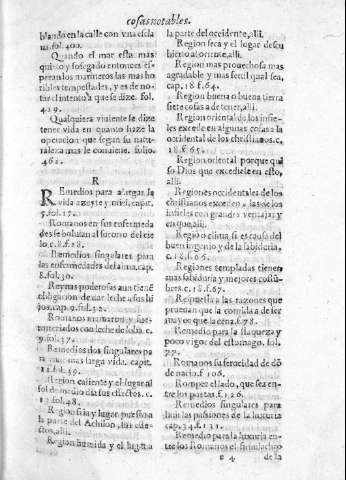 cosas notables.
blando en la calle con vna escla
ua. fol. 400.
Quando el mar esta mas
quieto y sosegado entonces es-
peran los marineros las mas ho
rribles tempestades, y es de no-
tar el intento a que se dize. fol.
419.
Qualquiera viuiente se dize
tener vida en quanto haze la
operacion que segun su natu-
raleza mas le conuiene. folio.
462.
R
Remedios para alargar la
vida azeyte y miel. capit.
5. fol. 17.
Romanos en sus enfermeda
des se boluian al
lo c. 8. f. 28.
Remedios singulares para
las enfermedades del cap.
8. fol. 30.
Reynas poderosas aun tiené
obligacion de dar leche a sus hi
jos cap. 9. fol. 32.
Romanos
con leche de loba. c.
9. fol. 37.
Remedios dos singulares pa
ra mas larga vida. capit.
11. fol. 39.
Region caliente y el lugar al
sol de medio dia sus efectos. c.
fol. 48.
Region fria y lugar puesto a
la parte del Aquilon, sus efe-
ctos, alli.
Region humida y el lugar a
la parte del occidente, alli.
Region seca y el lugar descu
bierto al oriente, alli.
Region mas prouechosa mas
agradable y mas fertil qual sea,
cap. 18 f. 64.
Region buena o buena tierra
siete cosas a de tener, alli.
Region oriental de los infie-
les excede en algunas cosas a la
occidental de los christianos. c.
18. f. 65.
Region oriental porque qui
so Dios que excediese en esto,
alli.
Regiones occidentales de los
christianos exceden a las de los
infieles con grandes ventajas y
en que, alli.
Regió o clima, si es causa del
buen ingenio y de la sabiduria,
c. 18. f. 66.
Regiones templadas tienen
mas sabiduria y mejores costú-
bres. c. 18. f. 67.
Respuesta a las razones que
prueuan que la comida a de ser
mayor que la cena. f. 78.
Remedio para la flaqueza y
poco vigor del estomago. fol.
77.
Romanos su ferocidad de dó
de nacio. f. 106.
Romper el lado, que sea en-
tre los poetas. f. 126.
Remedios singulares para
las passiones de la luxuria
cap. 34. f. 131.
Remedio para la luxuria en-
tre los Romanos el simulachro
e 4 de la